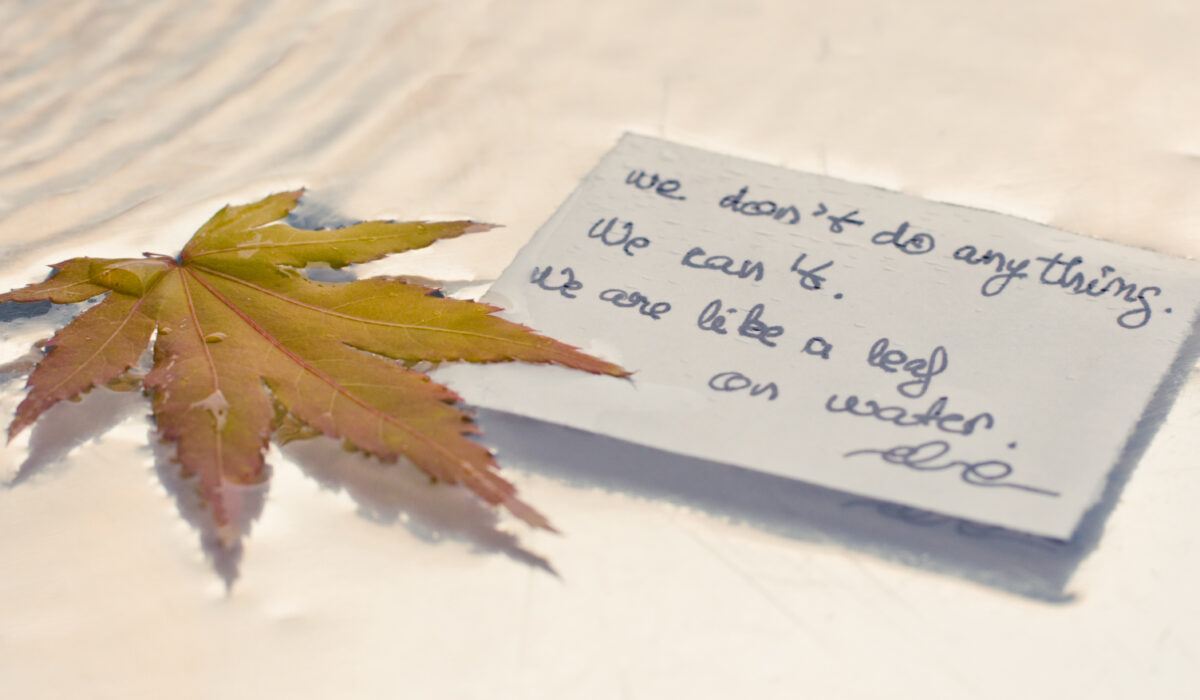 we don't do anything.
We can't.
We are like a leaf
on water.